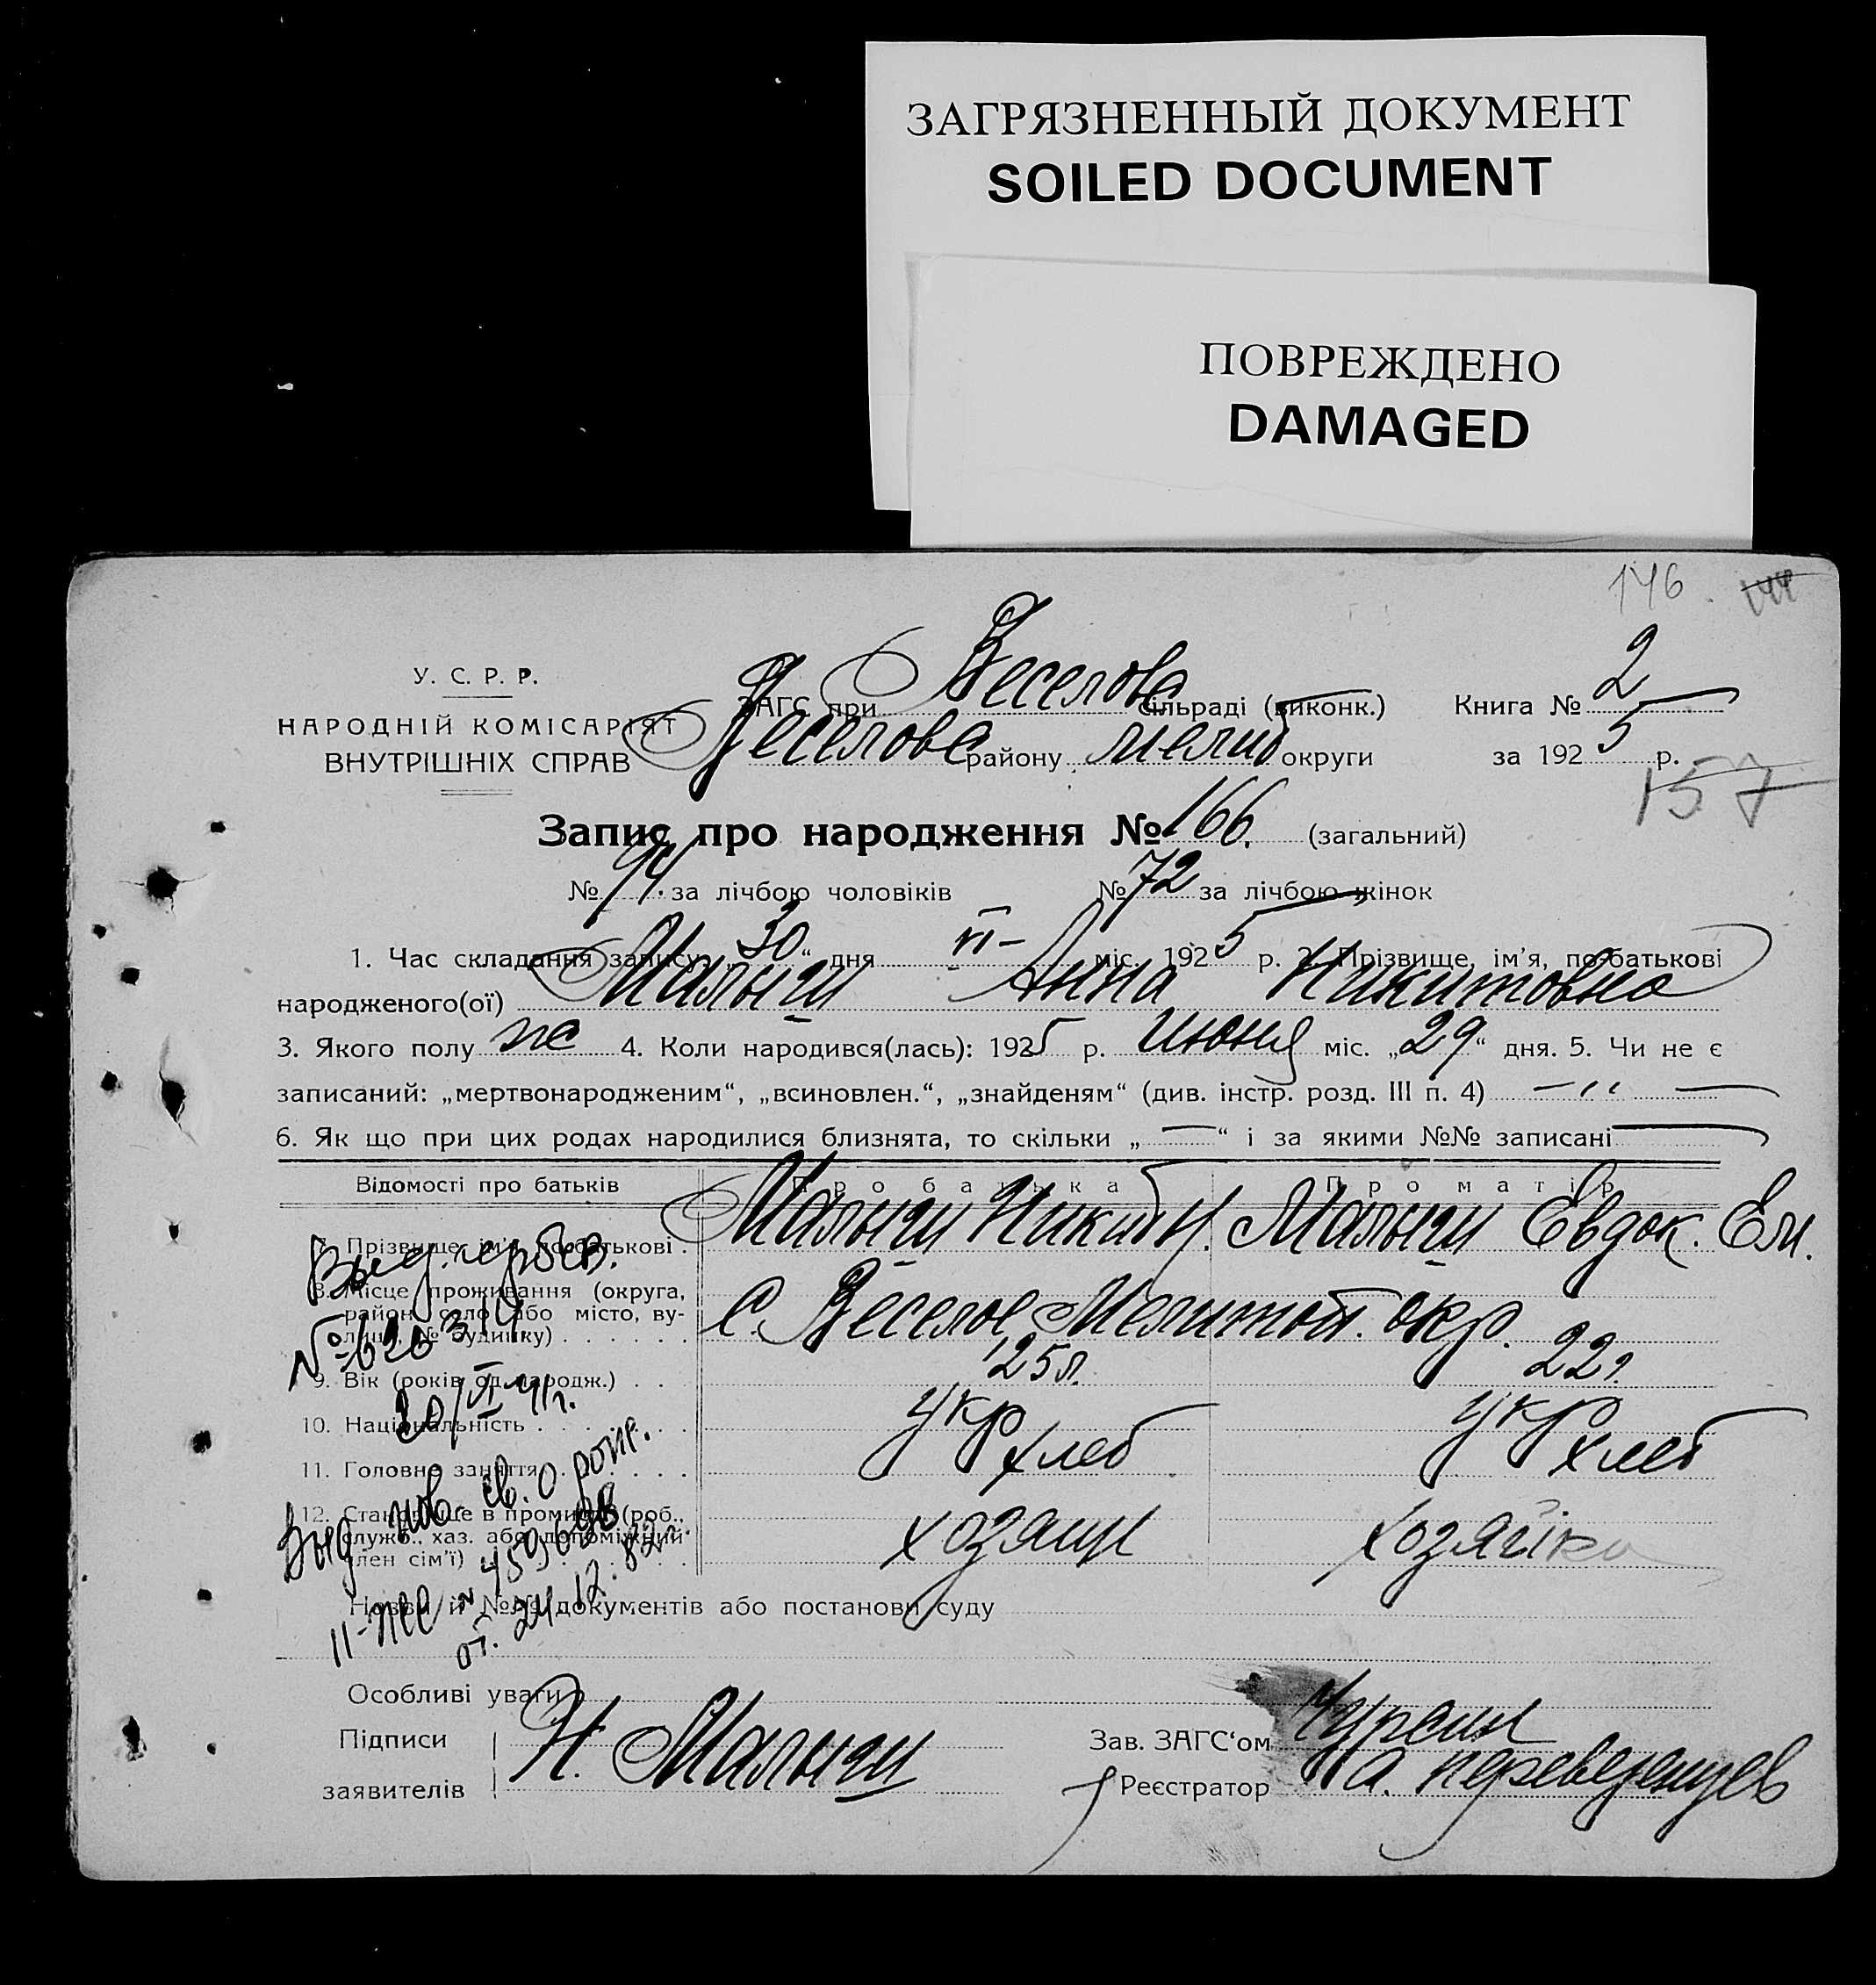 ЗАГРЯЗНЕННЫЙ ДОКУМЕНТ
SOILED DOCUMENT
ПОВРЕЖДЕНО
DAMAGED
146
У. С. Р. Р.
НАРОДНІЙ КОМІСАРІЯТ
ВНУТРІШНІХ СПРАВ
ЗАГС при Веселовс сільраді (виконк.) Книга № 2
Веселовс району Мелит округи за 1925 р.
157
Запис про народження № 166. (загальний)
№ 94. за лічбою чоловіків № 72 за лічбою жінок
1. Час складання запису: „30“ дня VI- міс. 1925 р. 2. Прізвище, ім'я, по-батькові
народженого(ої) Малыги Анна Никитовна
3. Якого полу ж 4. Коли народився(лась): 1925 р. Июня міс. „29“ дня. 5. Чи не є
записаний: „мертвонародженим“, „всиновлен.“, „знайденям“ (див. інстр. розд. III п. 4)
6. Як що при цих родах народилися близнята, то скільки „—“ і за якими №№ записані
Відомості про батьків Про батька Про матір
7. Прізвище, ім'я, по-батькові . Малыги Никит И. Малыги Евдок. Ели.
8. Місце проживання (округа,
район, село або місто, ву-
лиця, № будинку) С. Веселое Мелитоп. окр.
9. Вік (років од народж.) . . 25 л. 22 г.
10. Національність Укр Укр
11. Головне заняття хлеб хлеб
12. Становище в промислі (роб.,
служб., хаз. або допоміжний
член сім'ї) хозяин хозяйка
Выд.
№
20/VI 41 г.
Выд пов. св. о рожд.
II-ЖС № 459698
от. 24.12.82 г.
Назви й №№ документів або постанови суду
Особливі уваги
Підписи
заявителів Н. Малыги
Зав. ЗАГС'ом Чурсин
Реєстратор а. Переведенцев